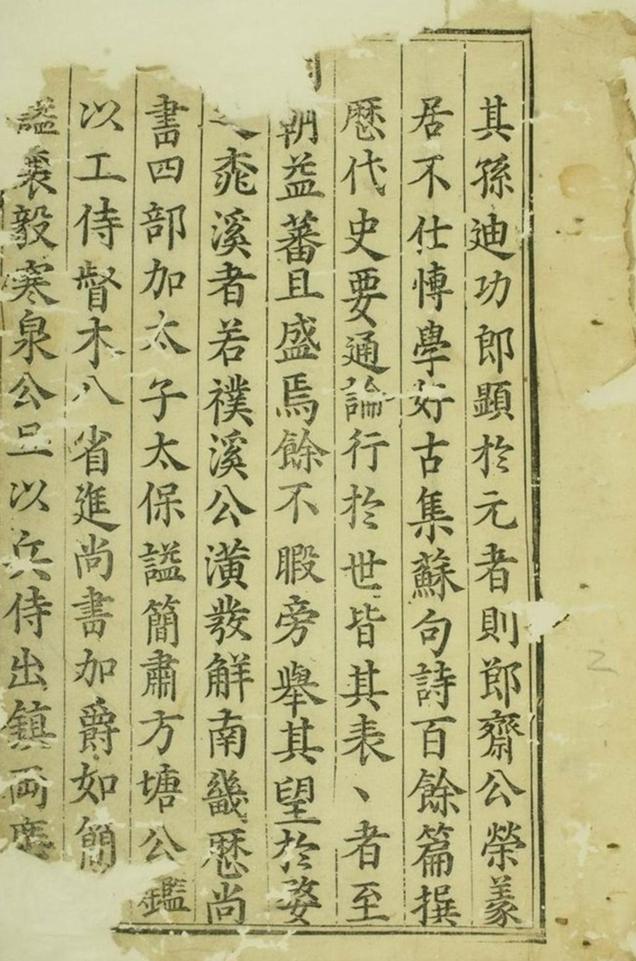 其孫迪功郎顯於元者則郎齋公榮羕
居不仕愽學好古集蘇句詩百餘篇撰
歷代史要通論行於世皆其表丶者至
朝益蕃且盛焉餘不暇旁舉其望於婺
之桃溪者若襆溪公潢發觧南畿歷尚
書四部加太子太保謚簡肅方塘公鑑
以工侍督木八省進尚書加爵如簡
謚襄毅寒泉公旦以兵侍出鎮兩廣
2